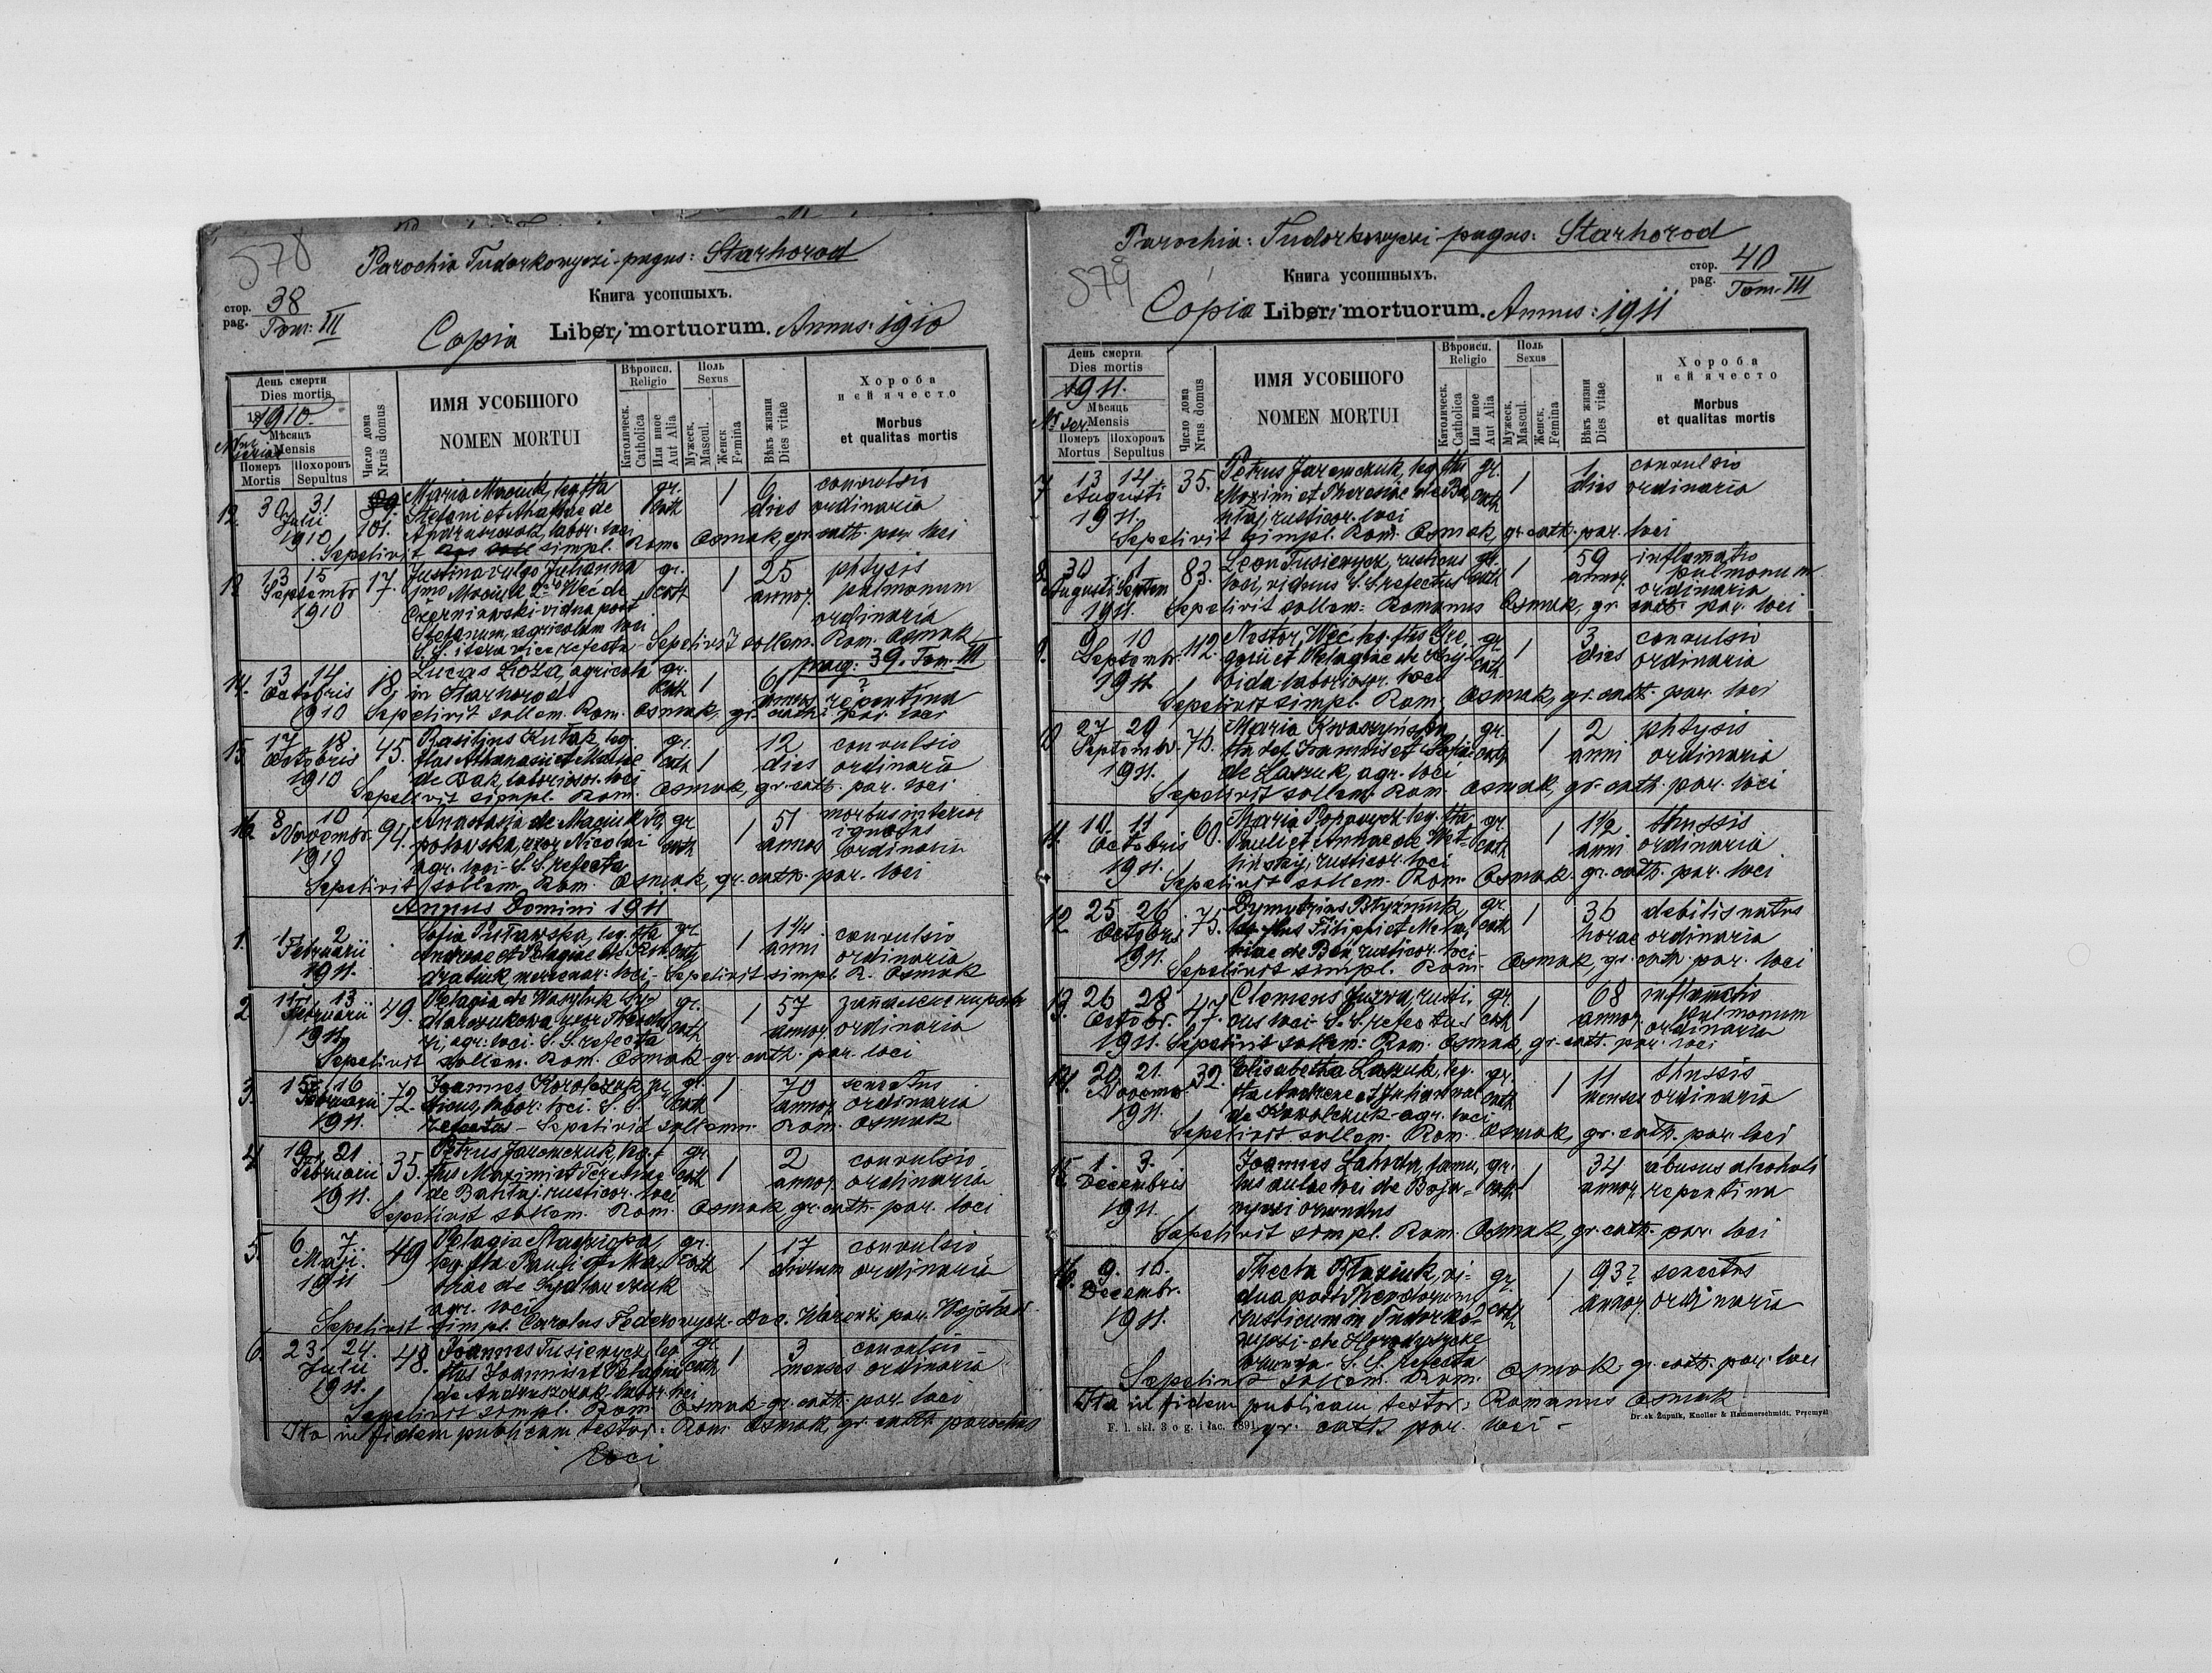 578
Parochia Tudorkowyczi - pagus: Starhorod
стор. 38
pag. Tom: III
Книга усопшыхъ.
Copia Libri mortuorum. Annus: 1910
День смерти
Dies mortis
1910.
Мѣсяцъ
Mensis
Померъ Похоронъ
Mortis Sepultus
Число дома
Nrus domus
ИМЯ УСОБШОГО
NOMEN MORTUI
Вѣроисп.
Religio
Католическ.
Catholica
Или иное
Aut Alia
Поль
Sexus
Мужеск.
Mascul.
Женск.
Femina
Вѣкъ жизни
Dies vitae
Хороба
и ей ячесто
Morbus
et qualitas mortis
12. 30 31 Julii 1910 101. Maria Maciuk, leg. flia gr. cath 1 6 dies convulsio ordinaria
Stefani et Anastasiae de
labor. loci
Sepelivit simpl. Rom. Osmak, gr. cath. par. loci
13 15 Septembr 1910 17. Justina vulgo Julianna gr. cath 1 25 annor. phtysis pulmonum ordinaria
1mo Maciuk 2do Weć de
Czerniawski vidua post
Stefanum, agricolam loci
S. S. refecta - Sepelivit sollem. Rom. Osmak
pag: 39. Tom. III
14. 13 14 Octobris 1910 18. Lucas Łoza, agricola gr. cath 1 61 annor repentina
in Starhorod
Sepelivit sollem. Rom. Osmak, gr. cath. par. loci
15. 17 18 Octobris 1910 45. Basilius Kułak leg. gr. cath 1 12 dies convulsio ordinaria
flius Athanasii et Mariae
de Bak, laborios. loci
Sepelivit simpl. Rom. Osmak, gr. cath. par. loci
16. 8 10 Novembr. 1910 94. Anastasia de Maciuk gr. cath 1 51 annor morbus interior ignotus ordinaria
uxor Nicolai
agr. loci - S. S. refecta
Sepelivit sollem. Rom. Osmak, gr. cath. par. loci
Annus Domini 1911
1. 1 2 Februarii 1911. Sofia Puławska, leg. flia gr. cath 1 1 1/4 anni convulsio ordinaria
Andreae et Pelagiae de
mercenar: loci - Sepelivit simpl. R. Osmak
2 11 13 Februarii 1911 49. Pelagia de Wasyluk gr. cath 1 57 annor. ordinaria
uxor Theodo
ri, agr. loci. S. S. refecta
Sepelivit sollem. Rom. Osmak - gr. cath. par. loci
3. 15 16 Februarii 1911. 72. Joannes Korolczuk gr. cath 1 70 annor. senectus ordinaria
labor: loci. S. S.
refectus - Sepelivit sollemn. Rom. Osmak
4 19 21 Februarii 1911. 35. Petrus Jaremczuk, leg. gr. cath 1 2 annor. convulsio ordinaria
flius Maximi et Teresiae
de Bahtaj, rusticor. loci
Sepelivit sollem. Rom. Osmak gr. cath. par. loci
5. 6 7 Maji 1911 49 Pelagia gr. cath 1 17 dierum convulsio ordinaria
leg. flia Pauli et Ma
riae de
agr. loci
Sepelivit simpl. Carolus Fedorowycz - Dec. Warenz, par.
6. 23 24. Julii 1911. 48. Joannes Fusiewycz, leg. gr. cath 1 3 menses convulsio ordinaria
flius Joannis et Pelagiae
de Andruszczak - labor. loci
Sepelivit simpl. Rom. Osmak - gr. cath. par. loci
Ita in fidem publicam testor: Rom. Osmak, gr. cath. parochus
loci
579
Parochia: Tudorkowyczi - pagus: Starhorod
стор. 40
pag. Tom. III
Книга усопшныхъ.
Copia Libri mortuorum. Annus: 1911
День смерти
Dies mortis
1911.
Nr ser.
Мѣсяцъ
Mensis
Померъ Похоронъ
Mortus Sepultus
Число дома
Nrus domus
ИМЯ УСОБШОГО
NOMEN MORTUI
Вѣроисп.
Religio
Католическ.
Catholica
Или иное
Aut Alia
Поль
Sexus
Мужеск.
Mascul.
Женск.
Femina
Вѣкъ жизни
Dies vitae
Хороба
и ей ячесто
Morbus
et qualitas mortis
7 13 14 Augusti 1911. 35. Petrus Jaremczuk, leg. flius gr. cath 1 1 dies convulsio ordinaria
Maximi et Theresiae de Ba
htaj, rusticor. loci
Sepelivit simpl. Rom. Osmak gr. cath. par. loci
8. 30 1 Augusti Septem 1911. 83. Leon Fusiewycz, rusticus gr. cath 1 59 annor. inflamatio pulmonum ordinaria
loci, viduus S. S. refectus
Sepelivit sollem: Romanus Osmak, gr. cath. par. loci
9. 9 10 Septembr. 1911. 112. Nestor Weć leg. flius Gre gr. cath 1 3 dies convulsio ordinaria
gorii et Pelagiae de
laborioror. loci
Sepelivit simpl. Rom. Osmak, gr. cath. par. loci
10 27 29 Septembr. 1911. Maria Kwaszyńska gr. cath 1 2 anni phtysis ordinaria
Joannis et
de Laszuk, agr. loci
Sepelivit sollem. Rom. Osmak, gr. cath. par. loci
11. 10. 11 Octobris 1911. 60. Maria Popowycz leg. flia gr. cath 1 1 1/2 anni thussis ordinaria
Pauli et Annae de
rusticor. loci
Sepelivit sollem. Rom. Osmak. gr. cath. par. loci
12 25 26 Octobris 1911. 75. Dymytrius gr. cath 1 36 horae debilis natus ordinaria
leg. flius Filippi et Mela
niae de rusticor. loci
Sepelivit simpl. Rom. Osmak, gr. cath. par. loci
13. 26 28 Octobr. 1911. 47. Clemens rusti gr. cath 1 68 annor. inflamatio pulmonum ordinaria
cus loci - S. S. refectus
Sepelivit sollem: Rom. Osmak, gr. cath. par. loci
14. 20 21. Novembr 1911. 32. Elisabetha Laszuk, leg. gr. cath 1 11 menses thussis ordinaria
flia Andreae et Juliannae
de Kowalczuk - agr. loci
Sepelivit sollem. Rom. Osmak, gr. cath. par. loci
15. 1. 3. Decembris 1911. Joannes Lahoda, famu gr. cath 1 34 annor. abusus alcoholi repentina
lus aulae loci de Boja
nyczi oriundus
Sepelivit simpl. Rom. Osmak, gr. cath. par. loci
16. 9. 10. Decembr. 1911. Thecla vi gr. cath 1 93? annor. senectus ordinaria
dua post Theodorum
rusticum in Tudorko
wyczi - de
oriunda. S. S. refecta
Sepelivit sollem. Rom. Osmak, gr. cath. par. loci
Ita in fidem publicam testor: Romanus Osmak
gr. cath. par. loci -
F. 1. skł. 3 o g. i łac. 1891
Druk Żupnik, Knoller & Hammerschmidt, Przemyśl